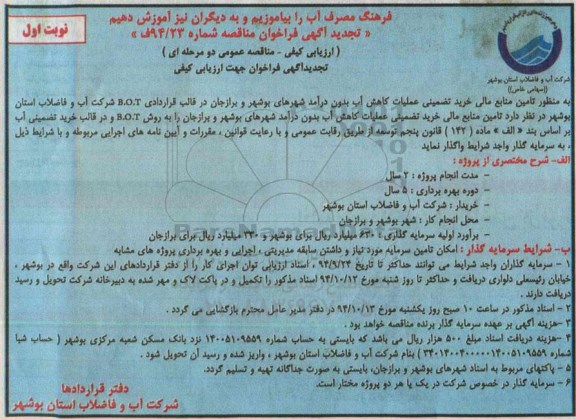 فرهنگ مصرف آب را بیاموزیم و به دیگران نیز آموزش دهیم
نوبت اول
« تجدید آگهی فراخوان مناقصه شماره ۹۴/۲۳ف »
( ارزیابی کیفی - مناقصه عمومی دو مرحله ای )
تجدیدآگهی فراخوان جهت ارزیابی کیفی
شرکت آب و فاضلاب استان بوشهر
((سهامی خاص))
به منظور تامین منابع مالی خرید تضمینی عملیات کاهش آب بدون درآمد شهرهای بوشهر و برازجان در قالب قراردادی B.O.T شرکت آب و فاضلاب استان
بوشهر در نظر دارد تامین منابع مالی خرید تضمینی عملیات کاهش آب بدون درآمد شهرهای بوشهر و برازجان را به روش B.O.T و در قالب خرید تضمینی آب
بر اساس بند « الف » ماده ( ۱۴۲ ) قانون پنجم توسعه از طریق رقابت عمومی و با رعایت قوانین ، مقررات و آیین نامه های اجرایی مربوطه و با شرایط ذیل
، به سرمایه گذار واجد شرایط واگذار نماید
الف- شرح مختصری از پروژه :
- مدت انجام پروژه : ۲ سال
- دوره بهره برداری : ۵ سال
- خریدار : شرکت آب و فاضلاب استان بوشهر
- محل انجام کار : شهر بوشهر و برازجان
- برآورد اولیه سرمایه گذاری : ۶۳۰ میلیارد ریال برای بوشهر و ۳۴۰ میلیارد ریال برای برازجان
ب- شرایط سرمایه گذار : امکان تامین سرمایه مورد نیاز و داشتن سابقه مدیریتی ، اجرایی و بهره برداری پروژه های مشابه
۱ - سرمایه گذاران واجد شرایط می توانند حداکثر تا تاریخ ۹۴/۹/۲۴ ، اسناد ارزیابی توان اجرای کار را از دفتر قراردادهای این شرکت واقع در بوشهر ،
خیابان رئیسعلی دلواری دریافت و حداکثر تا روز شنبه مورخ ۹۴/۱۰/۱۲ اسناد مذکور را تکمیل و در پاکت لاک و مهر شده به دبیرخانه شرکت تحویل و رسید
دریافت دارند .
۲ - اسناد مذکور در ساعت ۱۰ صبح روز یکشنبه مورخ ۹۴/۱۰/۱۳ در دفتر مدیر عامل محترم بازگشایی می گردد .
۳ -هزینه آگهی بر عهده سرمایه گذار برنده مناقصه خواهد بود .
۴ -هزینه دریافت اسناد مبلغ ۵۰۰ هزار ریال می باشد که بایستی به حساب شماره ۱۴۰۰۵۱۰۹۵۵۹ نزد بانک مسکن شعبه مرکزی بوشهر ( حساب شبا
شماره ۳۴۰۱۴۰۰۴۰۰۰۰۰۱۴۰۰۵۱۰۹۵۵۹ ) بنام شرکت آب و فاضلاب استان بوشهر ، واریز شده و رسید آن تحویل شود .
۵ - پاکتهای مربوط به اسناد شهرهای بوشهر و برازجان، بایستی به صورت جداگانه تهیه و تسلیم گردد.
۶ - سرمایه گذار در خصوص شرکت در یک یا هر دو پروژه مختار است.
دفتر قراردادها
شرکت آب و فاضلاب استان بوشهر